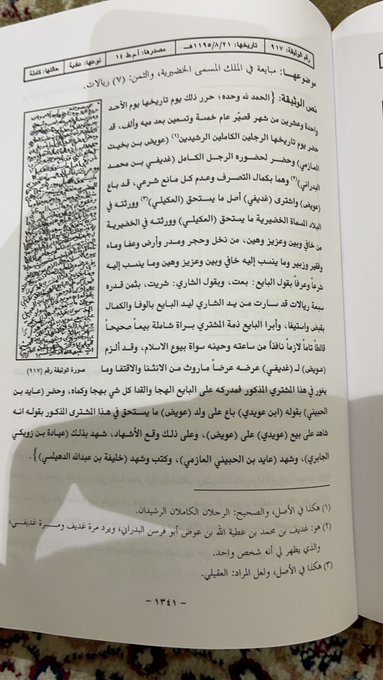 رقم الوثيقة: ٩١٧ تاريخها: ١١٩٥/٨/٢١هـ مصدرها: أ.م.ط ١٤ نوعها: عادية حالتها: كاملة
موضوعها: مبايعة في الملك المسمى الخضيرية، والثمن: (٧) ريالات.
نص الوثيقة: {الحمد لله وحده؛ حرر ذلك يوم تاريخها يوم الأحد
واحدة وعشرين من شهر قصيّر عام خمسة وتسعين بعد مية وألف، قد
حضر يوم تاريخها الرجلين الكاملين الرشيدين(١) (عويض بن بخيت
العازمي) وحضر لحضوره الرجل الكامل (غديفي بن محمد
البدراني)(٢) وهما بكمال التصرف وعدم كل مانع شرعي، قد باع
(عويض) واشترى (غديفي) أصل ما يستحق (العكيلي)(٣) وورثته في
البلاد المسماة الخضيرية ما يستحق (العكيلي) وورثته في الخضيرية
من خافي وبين وعزيز وهين، من نخل وحجر ومدر وأرض وعفا وماء
وفقير وزبير وما ينسب إليه خافي وبين وعزيز وهين وما ينسب إليه
شرعاً وعرفاً بقول البايع: بعت، وبقول الشاري: شريت، بثمن قدره
سبعة ريالات قد سارت من يد الشاري ليد البايع بالوفا والكمال
بقبض واستيفا، وأبرا البايع ذمة المشتري براة شاملة بيعاً صحيحاً
قاطعاً تاماً لازماً نافذاً من ساعته وحينه سواة بيوع الاسلام، وقد الزم
(عويض) لـ (غديفي) عرضه عرضاً ماروث من الانثنا والاقتفا وما
يغور في هذا المشتري المذكور فمدركه على البايع الهجا والقدا كل شي بهجا وكماه، وحضر (عايد بن
الحبيني) بقوله (ابن عويدي) باع على ولد (عويض) ما يستحق في هذا المشترى المذكور بقوله انه
شاهد على بيع (عويدي) على (عويض)، وعلى ذلك وقع الأشهاد، شهد بذلك (عيادة بن زويكي
الجابري)، وشهد (عايد بن الحبيني العازمي)، وكتب وشهد (خليفة بن عبدالله الدهيلسي)}.
صورة الوثيقة رقم (٩١٧)
(١) هكذا في الأصل، والصحيح: الرجلان الكاملان الرشيدان.
(٢) هو: غديف بن محمد بن عطية الله بن عوض أبو فرسن البدراني، ويرد مرة غديف ومرة غديفي،
والذي يظهر لي أنه شخص واحد.
(٣) هكذا في الأصل، ولعل المراد: العقيلي.
- ١٣٤١ -